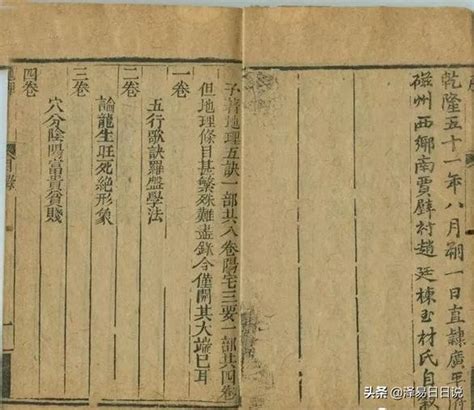 乾隆五十一年八月朔一日直隸廣平
磁州西鄉南賈壁村趙廷棟玉材氏自敘
子著地理五訣一部共八卷陽宅三要一部共四卷
但地理條目甚繁殊難盡錄今僅開其大端已耳
一卷
五行歌訣羅盤學法
二卷
論龍生旺死絕形象
三卷
穴分陰陽富貴貧賤
四卷
目錄
一
头条 @泽易日日说